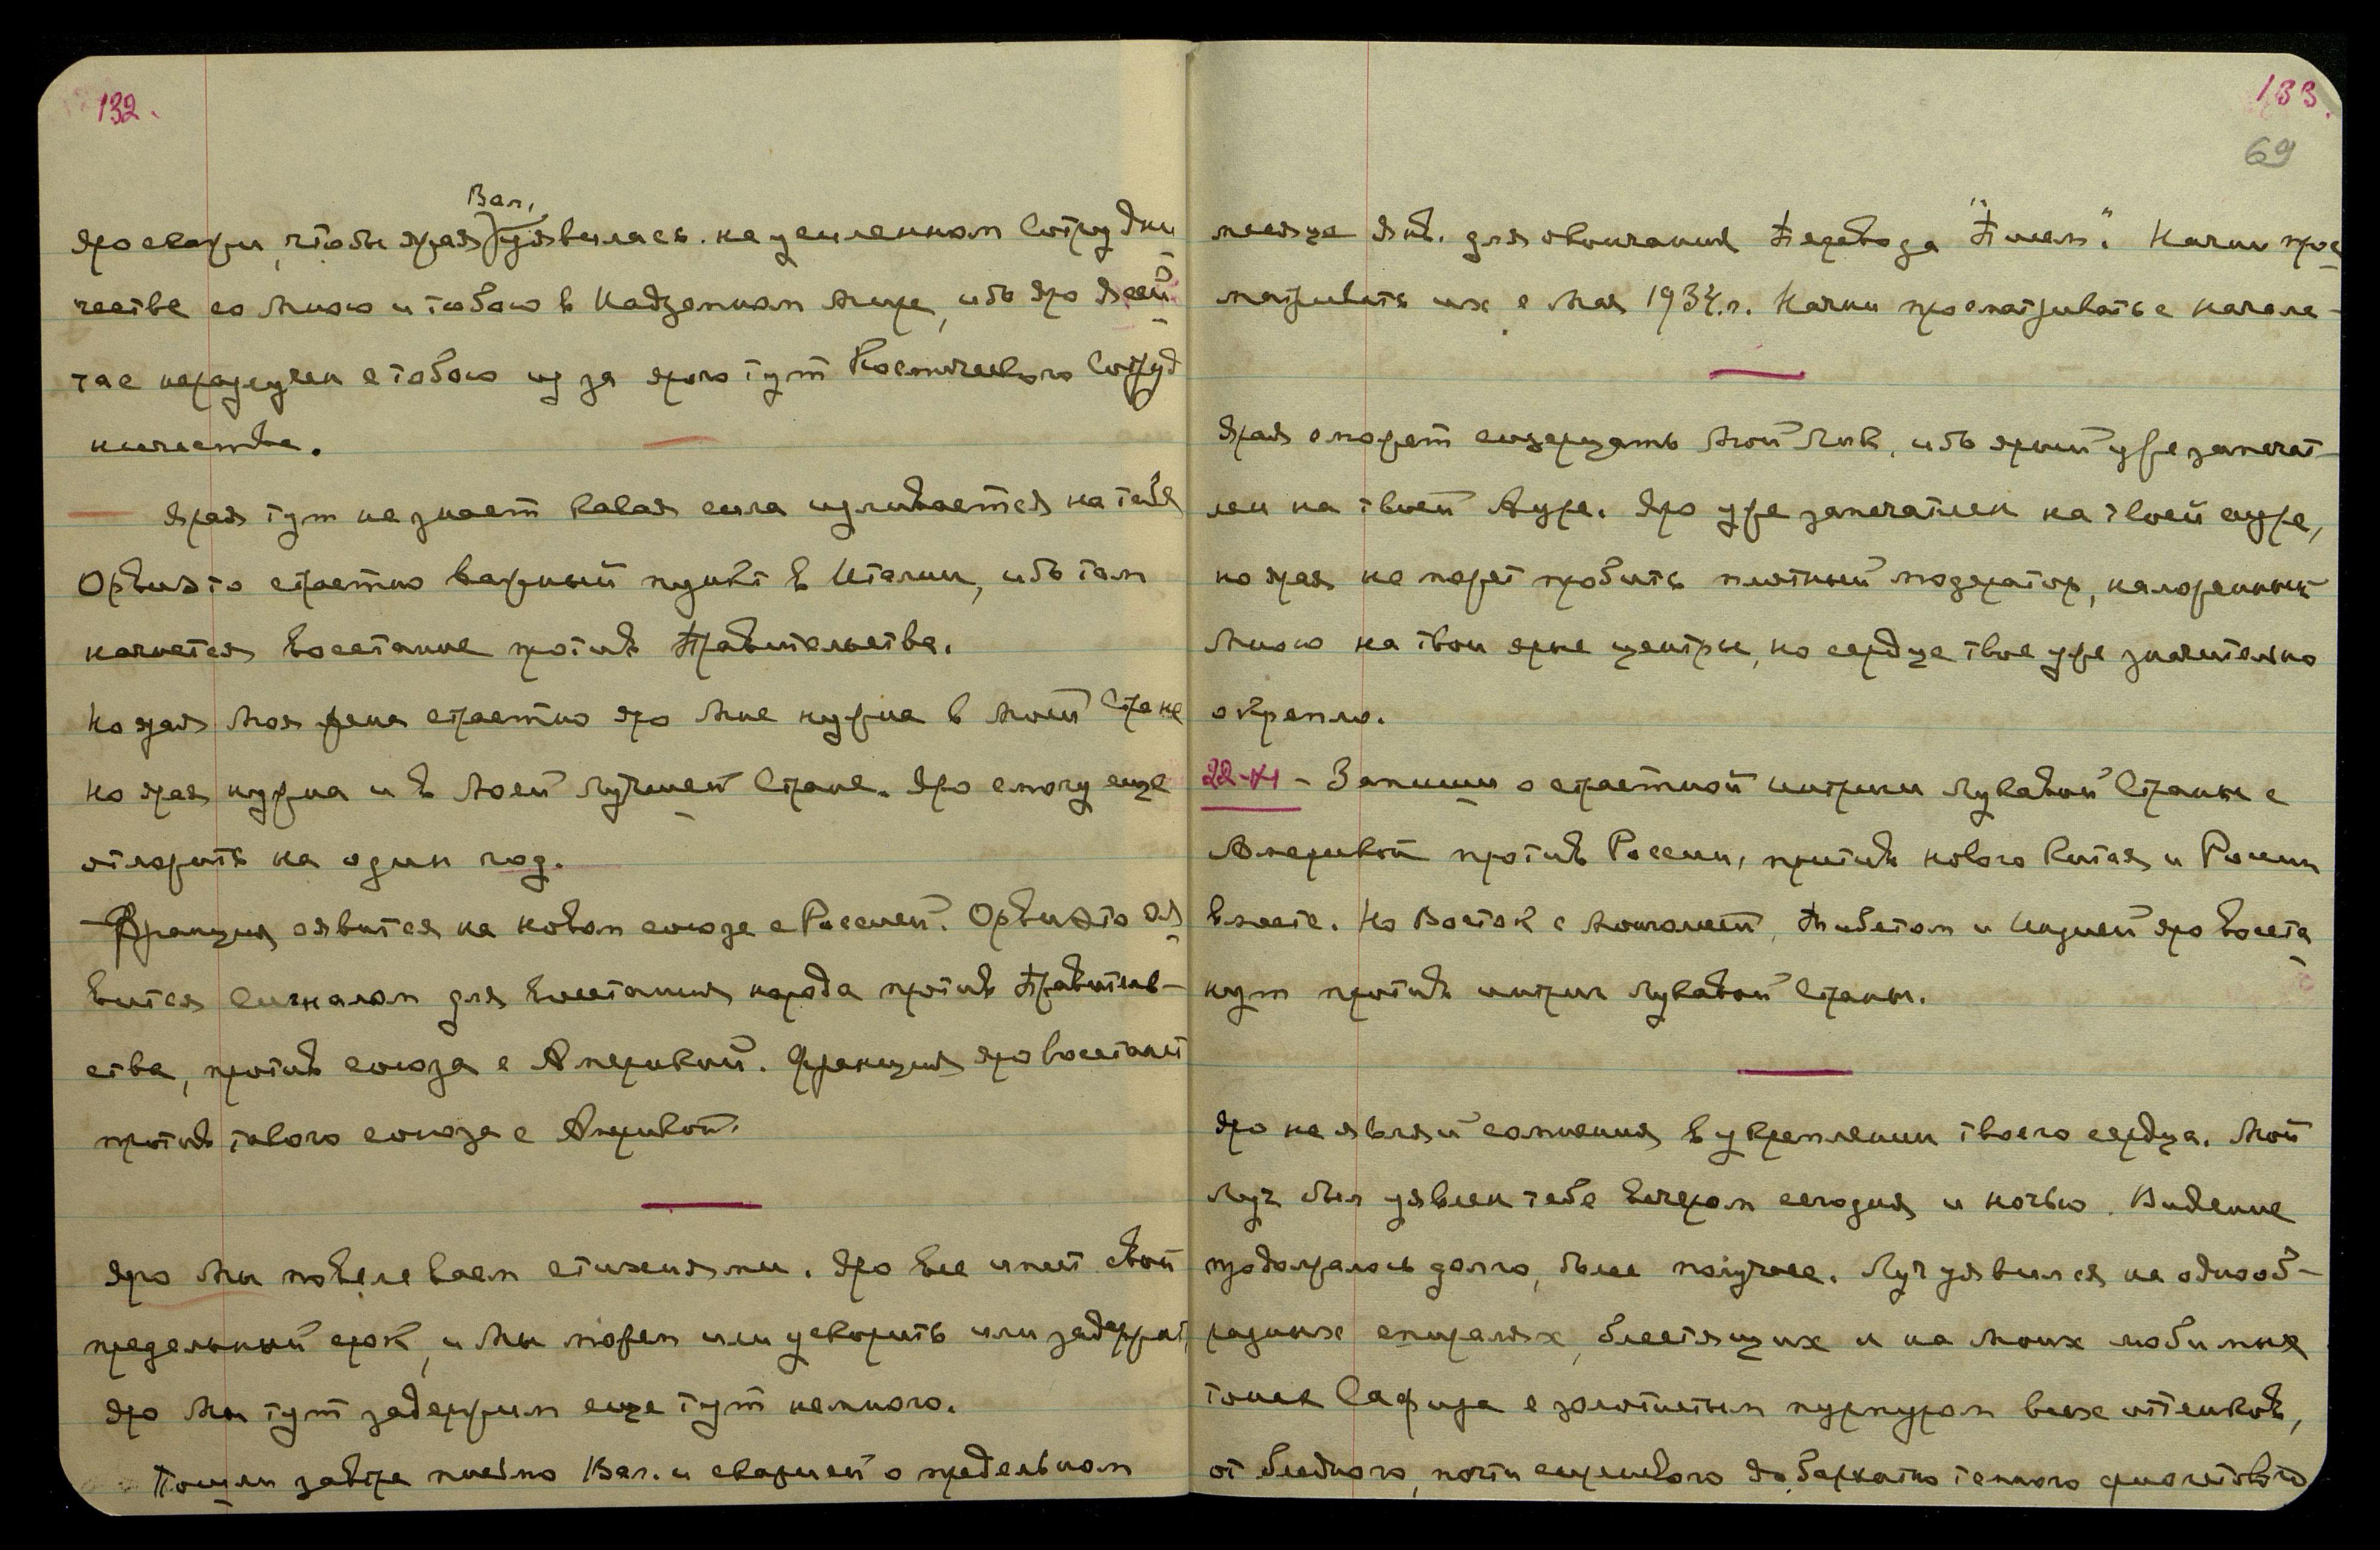 132.
Вал.
Яро скажи, чтобы ярая уявилась на усиленном Сотрудни
честве со Мною и тобою в Надземном мире, ибо яро
неразлучен с тобою из за ярого тут Космического Сотруд
ничества.
Ярая тут не знает какая сила изливается на тебя
Орвието страстно важный пункт в Италии, ибо там
начнется восстание против Правительства.
Но ярая Моя жена страстно яро Мне нужна в Моей Стране
но ярая нужна и в Моей лучшей Стране. Яро смогу еще
отложить на один год.
Франция явится на новом союзе с Россией. Орвието оя
вится сигналом для восстания народа против Правитель-
ства, против союза с Америкой. Франция яро восстанет
против такого союза с Америкой.
Яро Мы повелеваем стихиями. Яро все имеет свой
предельный срок, и Мы можем или ускорить или задержать,
яро Мы тут задержим еще тут немного.
Пошли завтра письмо Вал. и скажи ей о предельном
133.
69
месяце Янв. для окончания Перевода "Писем". Начни прос
матривать их с Мая 1934.г. Начни просматривать с начала
Ярая сможет созерцать Мой Лик, ибо ярый уже запечат-
лен на твоей Ауре. Яро уже запечатлен на твоей ауре,
но ярая не может пробить плотный модератор, наложенный
Мною на твои ярые центры, но сердце твое уже значительно
окрепло.
22-XI - Запиши о страстной интриги Лукавой Страны с
Америкой против России, против нового Китая и России
вместе. Но Восток с Монголией, Тибетом и Индией яро восста
нут против интриг Лукавой Страны.
Яро не являй сомнения в укреплении твоего сердца. Мой
Луч был уявлен тебе вечером сегодня и ночью. Видение
продолжалось долго, более получаса. Луч уявился на однооб-
разных спиралях, блестящих и на Моих любимых
тонах Сафира с золотистым пурпуром всех оттенков,
от бледного, почти сиреневого до бархатно темного фиолетового